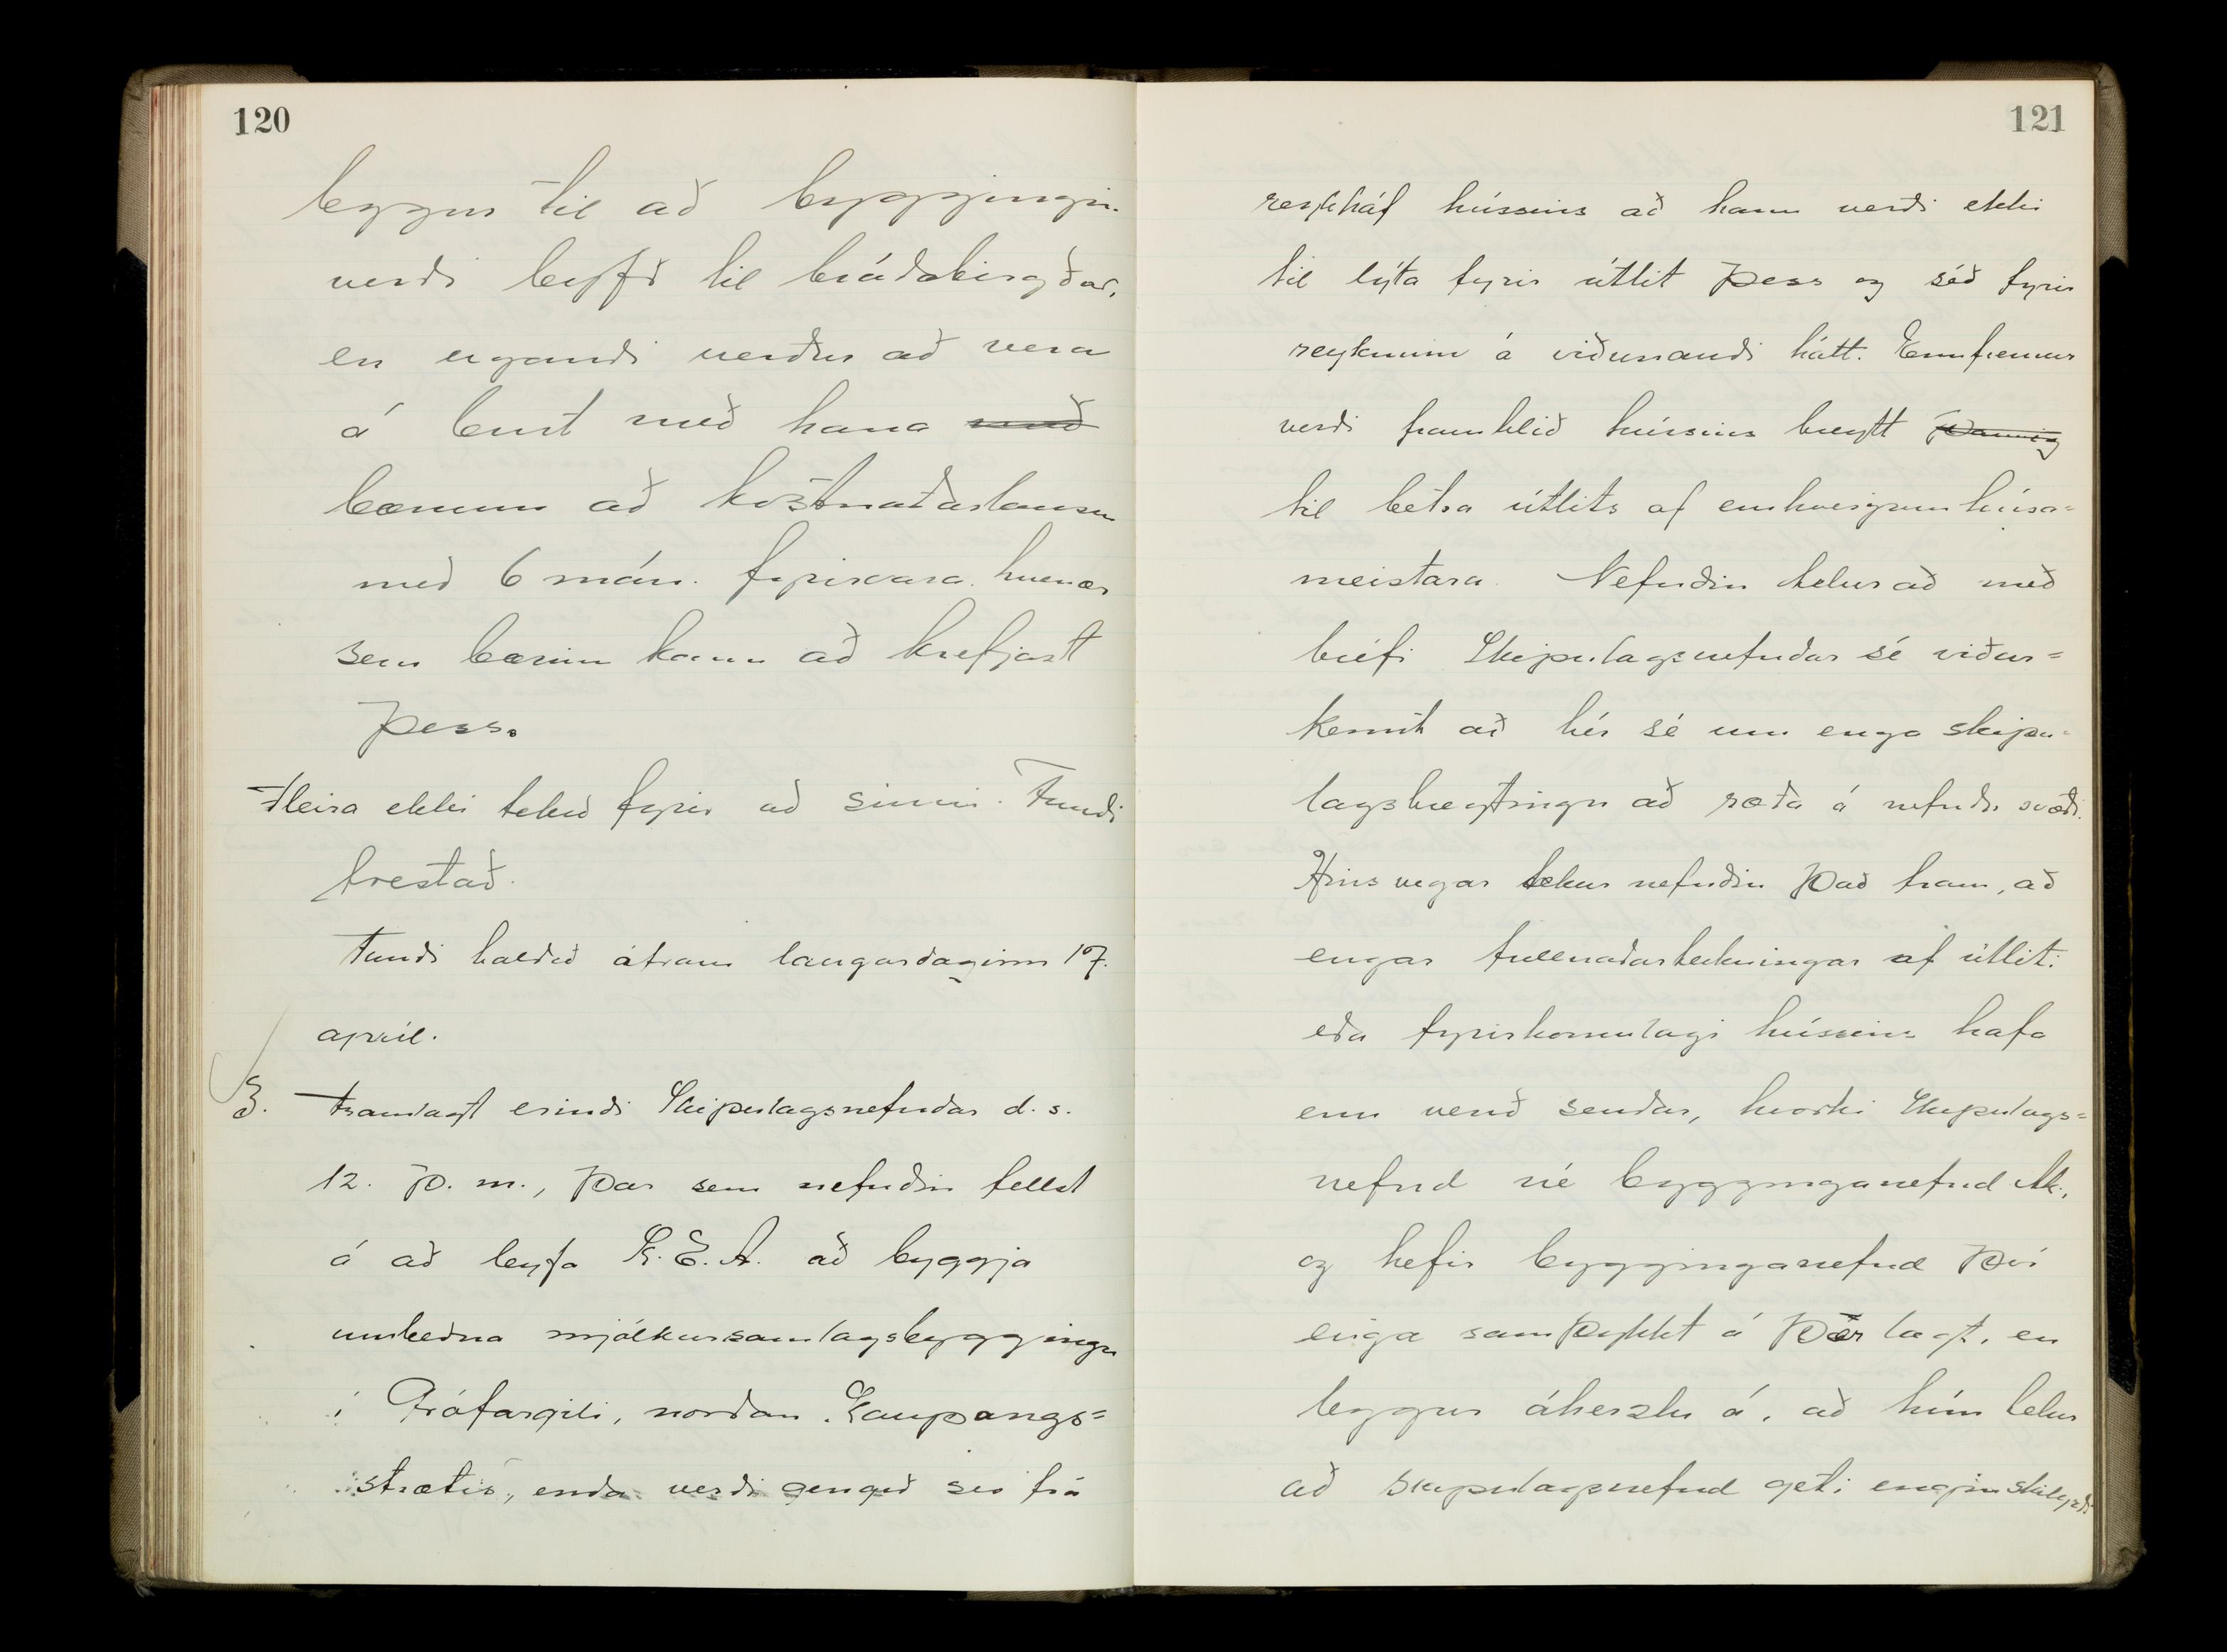 120
leggur til að byggingin
verði leyfð til bráðabirgðar,
en eigandi verður að vera
á burt með hana með
bænum að kostnaðarlausu
með 6 mán. fyrirvara hvenær
sem bærinn kann að krefjast
þess.
Fleira ekki tekið fyrir að sinni. Fundi
frestað.
Fundi haldið áfram laugardaginn 17.
apríl.
3. Framlagt erindi Skipulagsnefndar d. s.
12. þ. m., þar sem nefndin fellst
á að leyfa K. E. A. að byggja
umbeðna mjólkursamlagsbyggingu
í Grófargili, norðan Kaupangs=
strætis, enda verði gengið svo frá
121
reykháf hússins að hann verði ekki
til lýta fyrir útlit þess og séð fyrir
reyknum á viðunandi hátt. Ennfremur
verði framhlið hússins breytt þannig
til betra útlits af einhverjum húsa=
meistara. Nefndin telur að með
bréfi Skipulagsnefndar sé viður=
kennt að hér sé um enga skipu=
lagsbreytingu að ræða á nefndu svæði.
Hins vegar tekur nefndin það fram, að
engar fullnaðarteikningar af útliti
eða fyrirkomulagi hússins hafa
enn verið sendar, hvorki Skipulags=
nefnd né bygginganefnd Ak.,
og hefir bygginganefnd því
enga samþykkt á þær lagt, en
leggur áherzlu á, að hún telur
að Skipulagsnefnd geti engin skilyrði